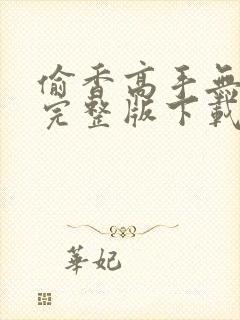 偷香高手無
完整版下載
華妃